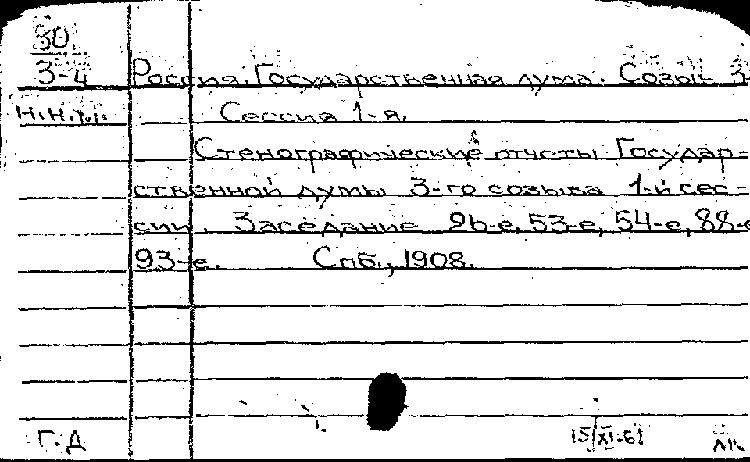 80
3-4
Россия. Государственная дума. Созыв 3-
Н.Н.т.г.
Сессия 1-я.
Стенографические отчеты Государ-
ственной думы 3-го созыва 1-й сес-
сии. Заседание 26-е, 53-е, 54-е, 88-е
93-е. Спб., 1908.
Г.Д
15/XI-61